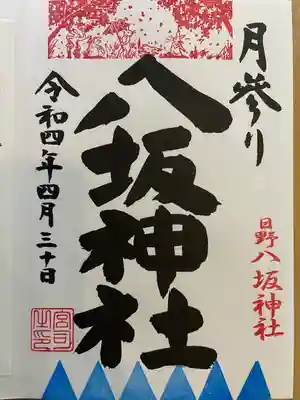 月参り
八坂神社
令和四年四月三十日
日野八坂神社
宮司之印